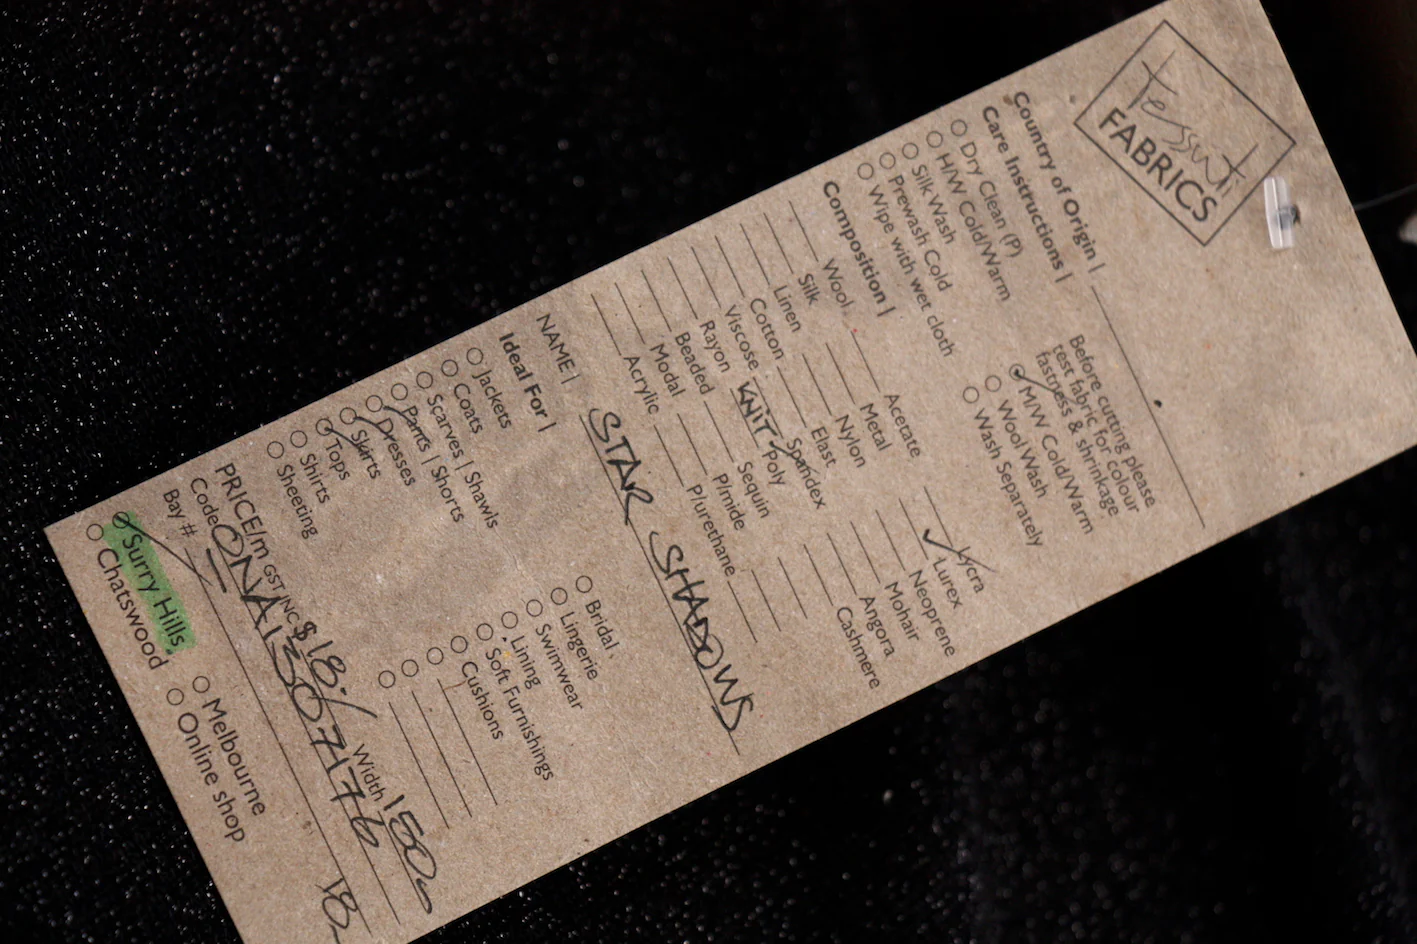 Tessuti
FABRICS
Country of Origin |
Care Instructions |
Dry Clean (P)
H/W Cold/Warm
Silk Wash
Prewash Cold
Wipe with wet cloth
Before cutting please
test fabric for colour
fastness & shrinkage
M/W Cold/Warm
Wool Wash
Wash Separately
Composition |
Wool
Silk
Linen
Cotton
Viscose
Rayon
Beaded
Modal
Acrylic
Acetate
Metal
Nylon
Elast
Spandex
KNIT Poly
Sequin
P/mide
P/urethane
Lycra
Lurex
Neoprene
Mohair
Angora
Cashmere
NAME | STAR SHADOWS
Ideal For |
Jackets
Coats
Scarves | Shawls
Pants | Shorts
Dresses
Skirts
Tops
Shirts
Sheeting
Bridal
Lingerie
Swimwear
Lining
Soft Furnishings
Cushions
PRICE/m GST INC $18./ Width 150
Bay #
Surry Hills
Chatswood
Melbourne
Online shop
18